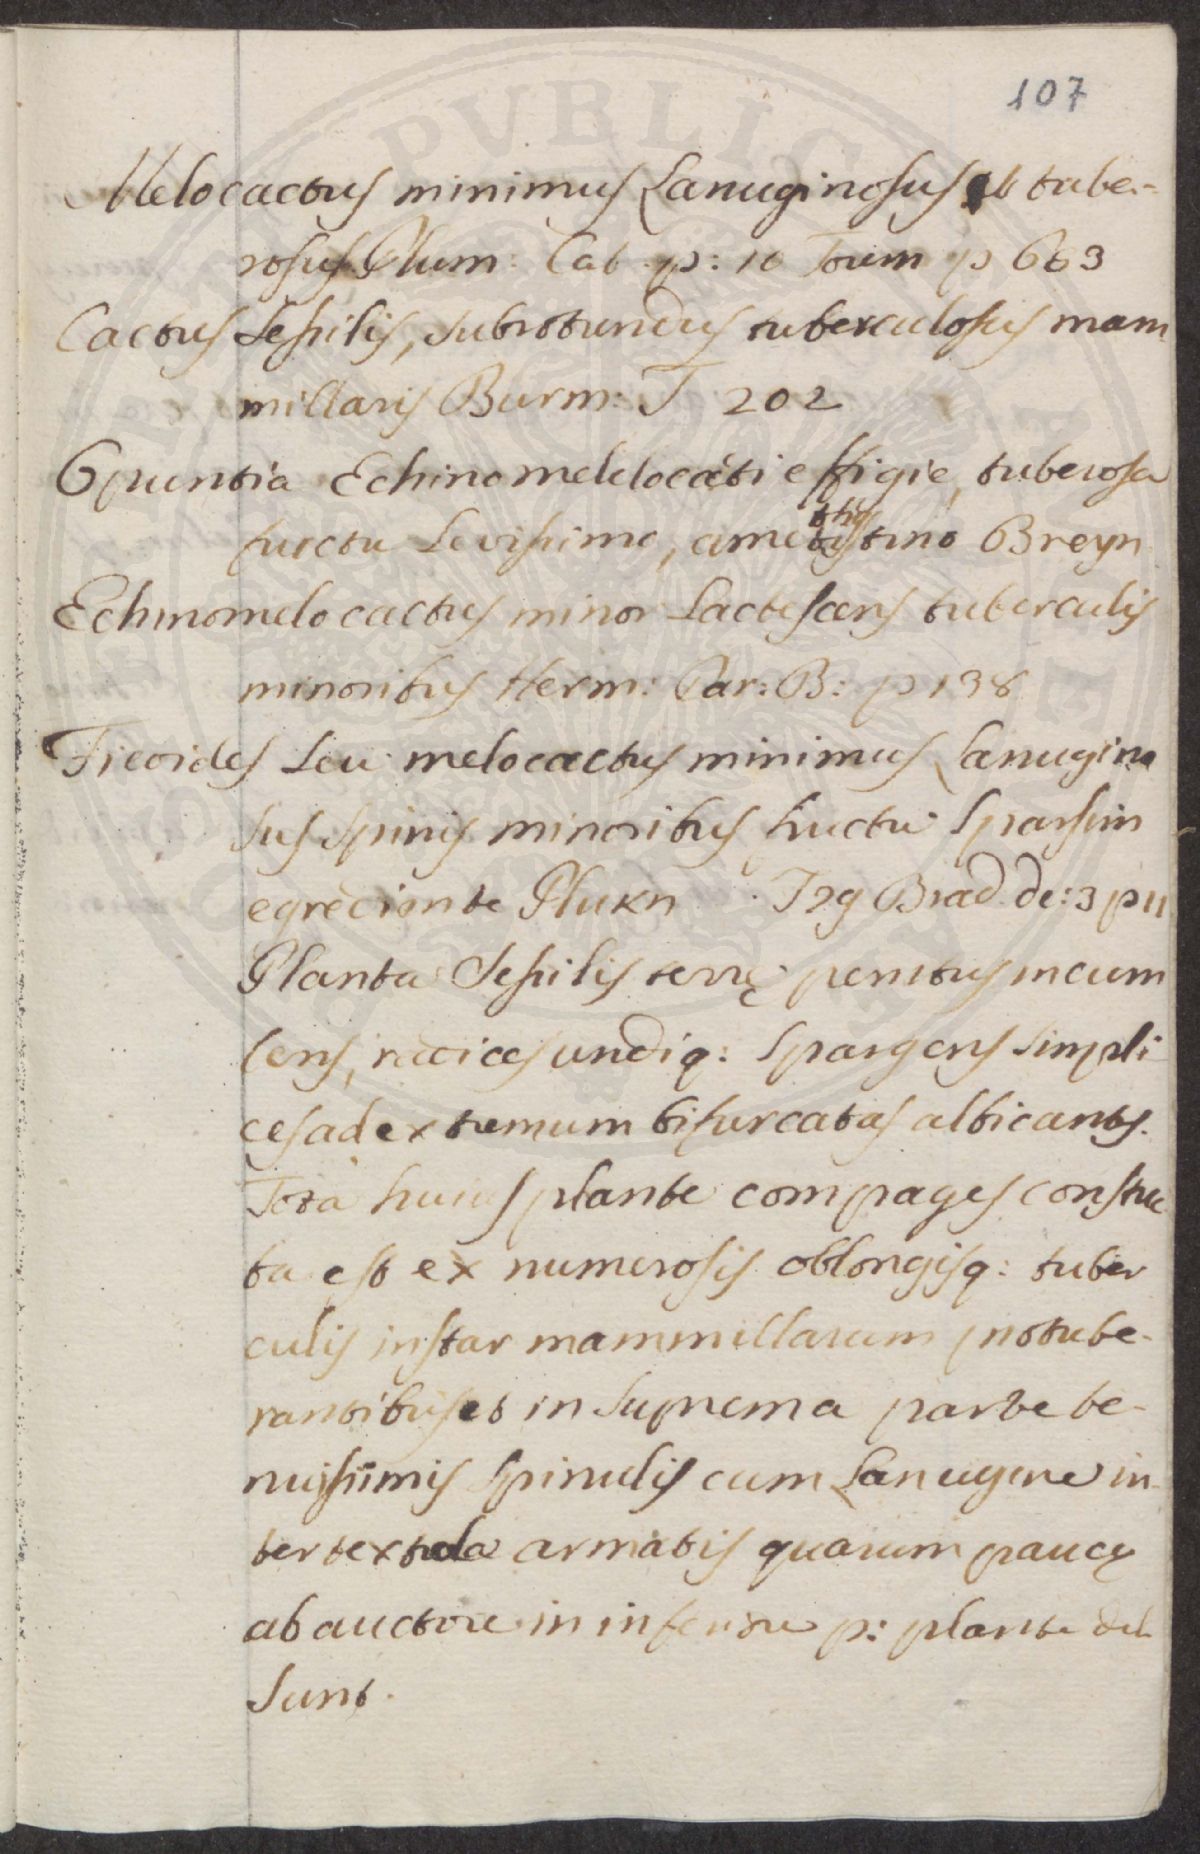 107
Melocactus minimus Lanuginosus et tube-
rosus Plum: Cat p: 16 Tourn p 663
Cactus Sessilis, subrotundus tuberculosus mam
millaris Burm: T 202
Opuntia Echinomelelocacti effigie, tuberosa
fructu Levissimo, ametistino Breyn
Echinomelocactus minor Lactescens tuberculis
minoribus Herm: Par: B: p 138
Ficoides seu melocactus minimus Lanugino
sus spinis minoribus fructu sparsim
egrediente Plukn T 29 Brad de: 3 p 11
Planta Sessilis terrę penitus incum
bens, radices undiq: Spargens simpli
ces ad extremum bifurcatas albicants.
Tota huius plante compages constru
ta est ex numerosis oblongisq: tuber
culis instar mammillarum protube-
rantibus et in suprema parte te-
nuissimis spinulis cum Lanugine in
ter texta armatis quarum paucę
ab auctore in inferiore p: plante
sunt.